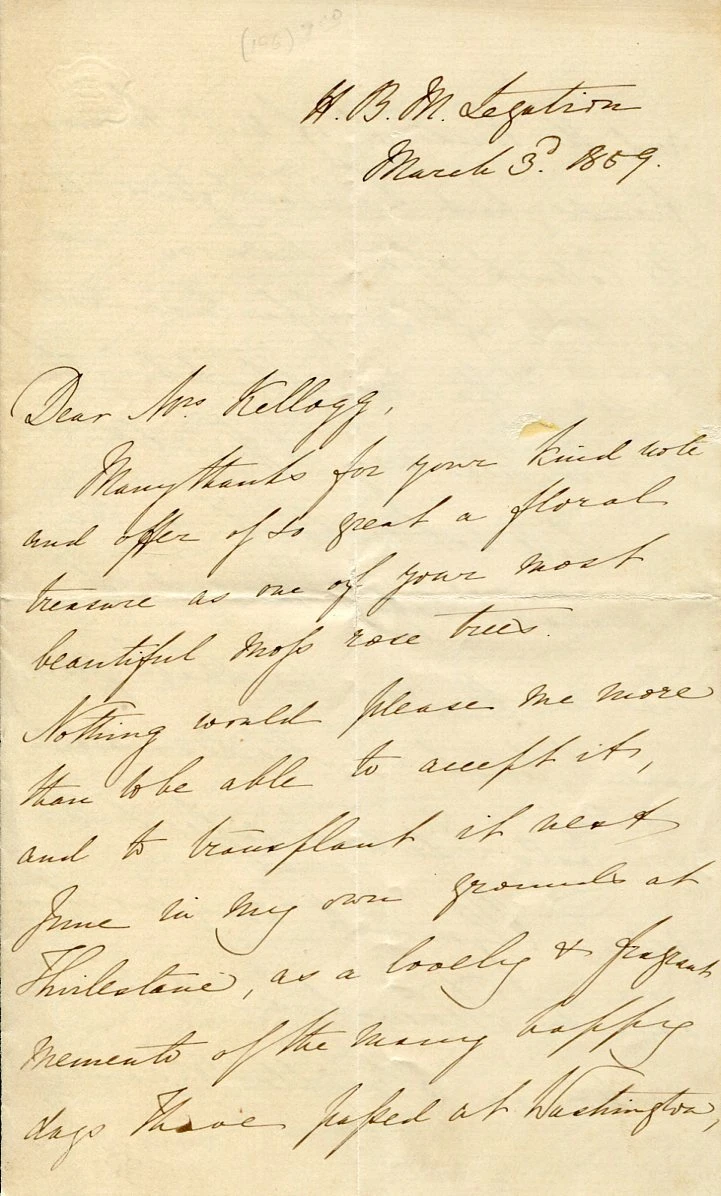 H. B. M. Legation
March 3d. 1859.
Dear Mrs Kellogg,
Many thanks for your kind note
and offer of so great a floral
treasure as one of your most
beautiful moss rose trees.
Nothing would please me more
than to be able to accept it,
and to transplant it next
June in my own grounds at
Thirlestane, as a lovely & fragrant
memento of the many happy
days I have passed at Washington,